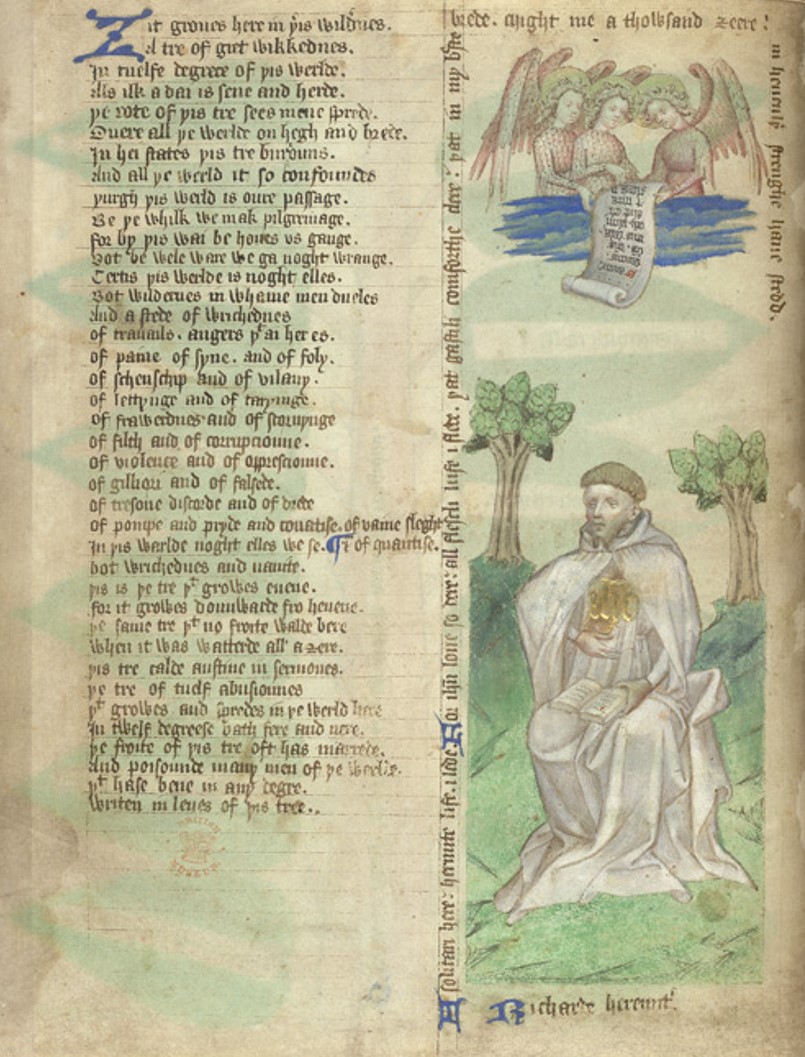 Zit growes here in þis wildrnes.
A tre of gret wikkednes.
In tuelfe degrece of þis werlde.
Als ilk a dai is sene and herde.
þe rote of þis tre sees mene sprede.
Ouere all þe werlde on hegh and brede.
In hei states þis tre buriouns.
And all þe werld it so confoundes
þurgh þis werld is oure passage.
Be þe whilk we mak pilgremage.
for by þis wai be houes vs gange.
Bot be wele ware we ga noght wrange.
Certis þis werlde is noght elles.
Bot wildernes in whame men duelles
And a stede of wrichednes
of trauails. angers þt ai her es.
of paine of syne. and of foly.
of schenschip and of vilany.
of lettynge and of taryinge.
of frawerdnes and of stornynge
of filth and of corrupcioune.
of violence and of oppressioune.
of gillion and of falsede.
of tresone discorde and of drede
of pompe and pryde and couatise. of vaine sleght
In þis warlde noght elles we se. & of quantise.
bot wrichednes and vanite.
þis is þe tre þt growes euene.
for it growes dounwarde fro heuene.
þe same tre þt no froite walde bere
when it was watterde all a zere.
þis tre calde austine in sermones.
þe tre of tuelf abusiounes
þt growes and spredes in þe werld here
In twelf degreese bath fere and nere.
þe froite of þis tre oft has marrede.
And poisounde many men of þe werlde.
þt hase bene in any degre.
writen in leues of þis tree..
A solitari here: hermite life. i lede. For ihu loue so dere: all flesch lufe i flede. þat gastli comforthe dere: þat in my brste
brede. might me a thowsand zeere:
in heuenly strenghe haue stedd.
IHC
Richarde heremit.